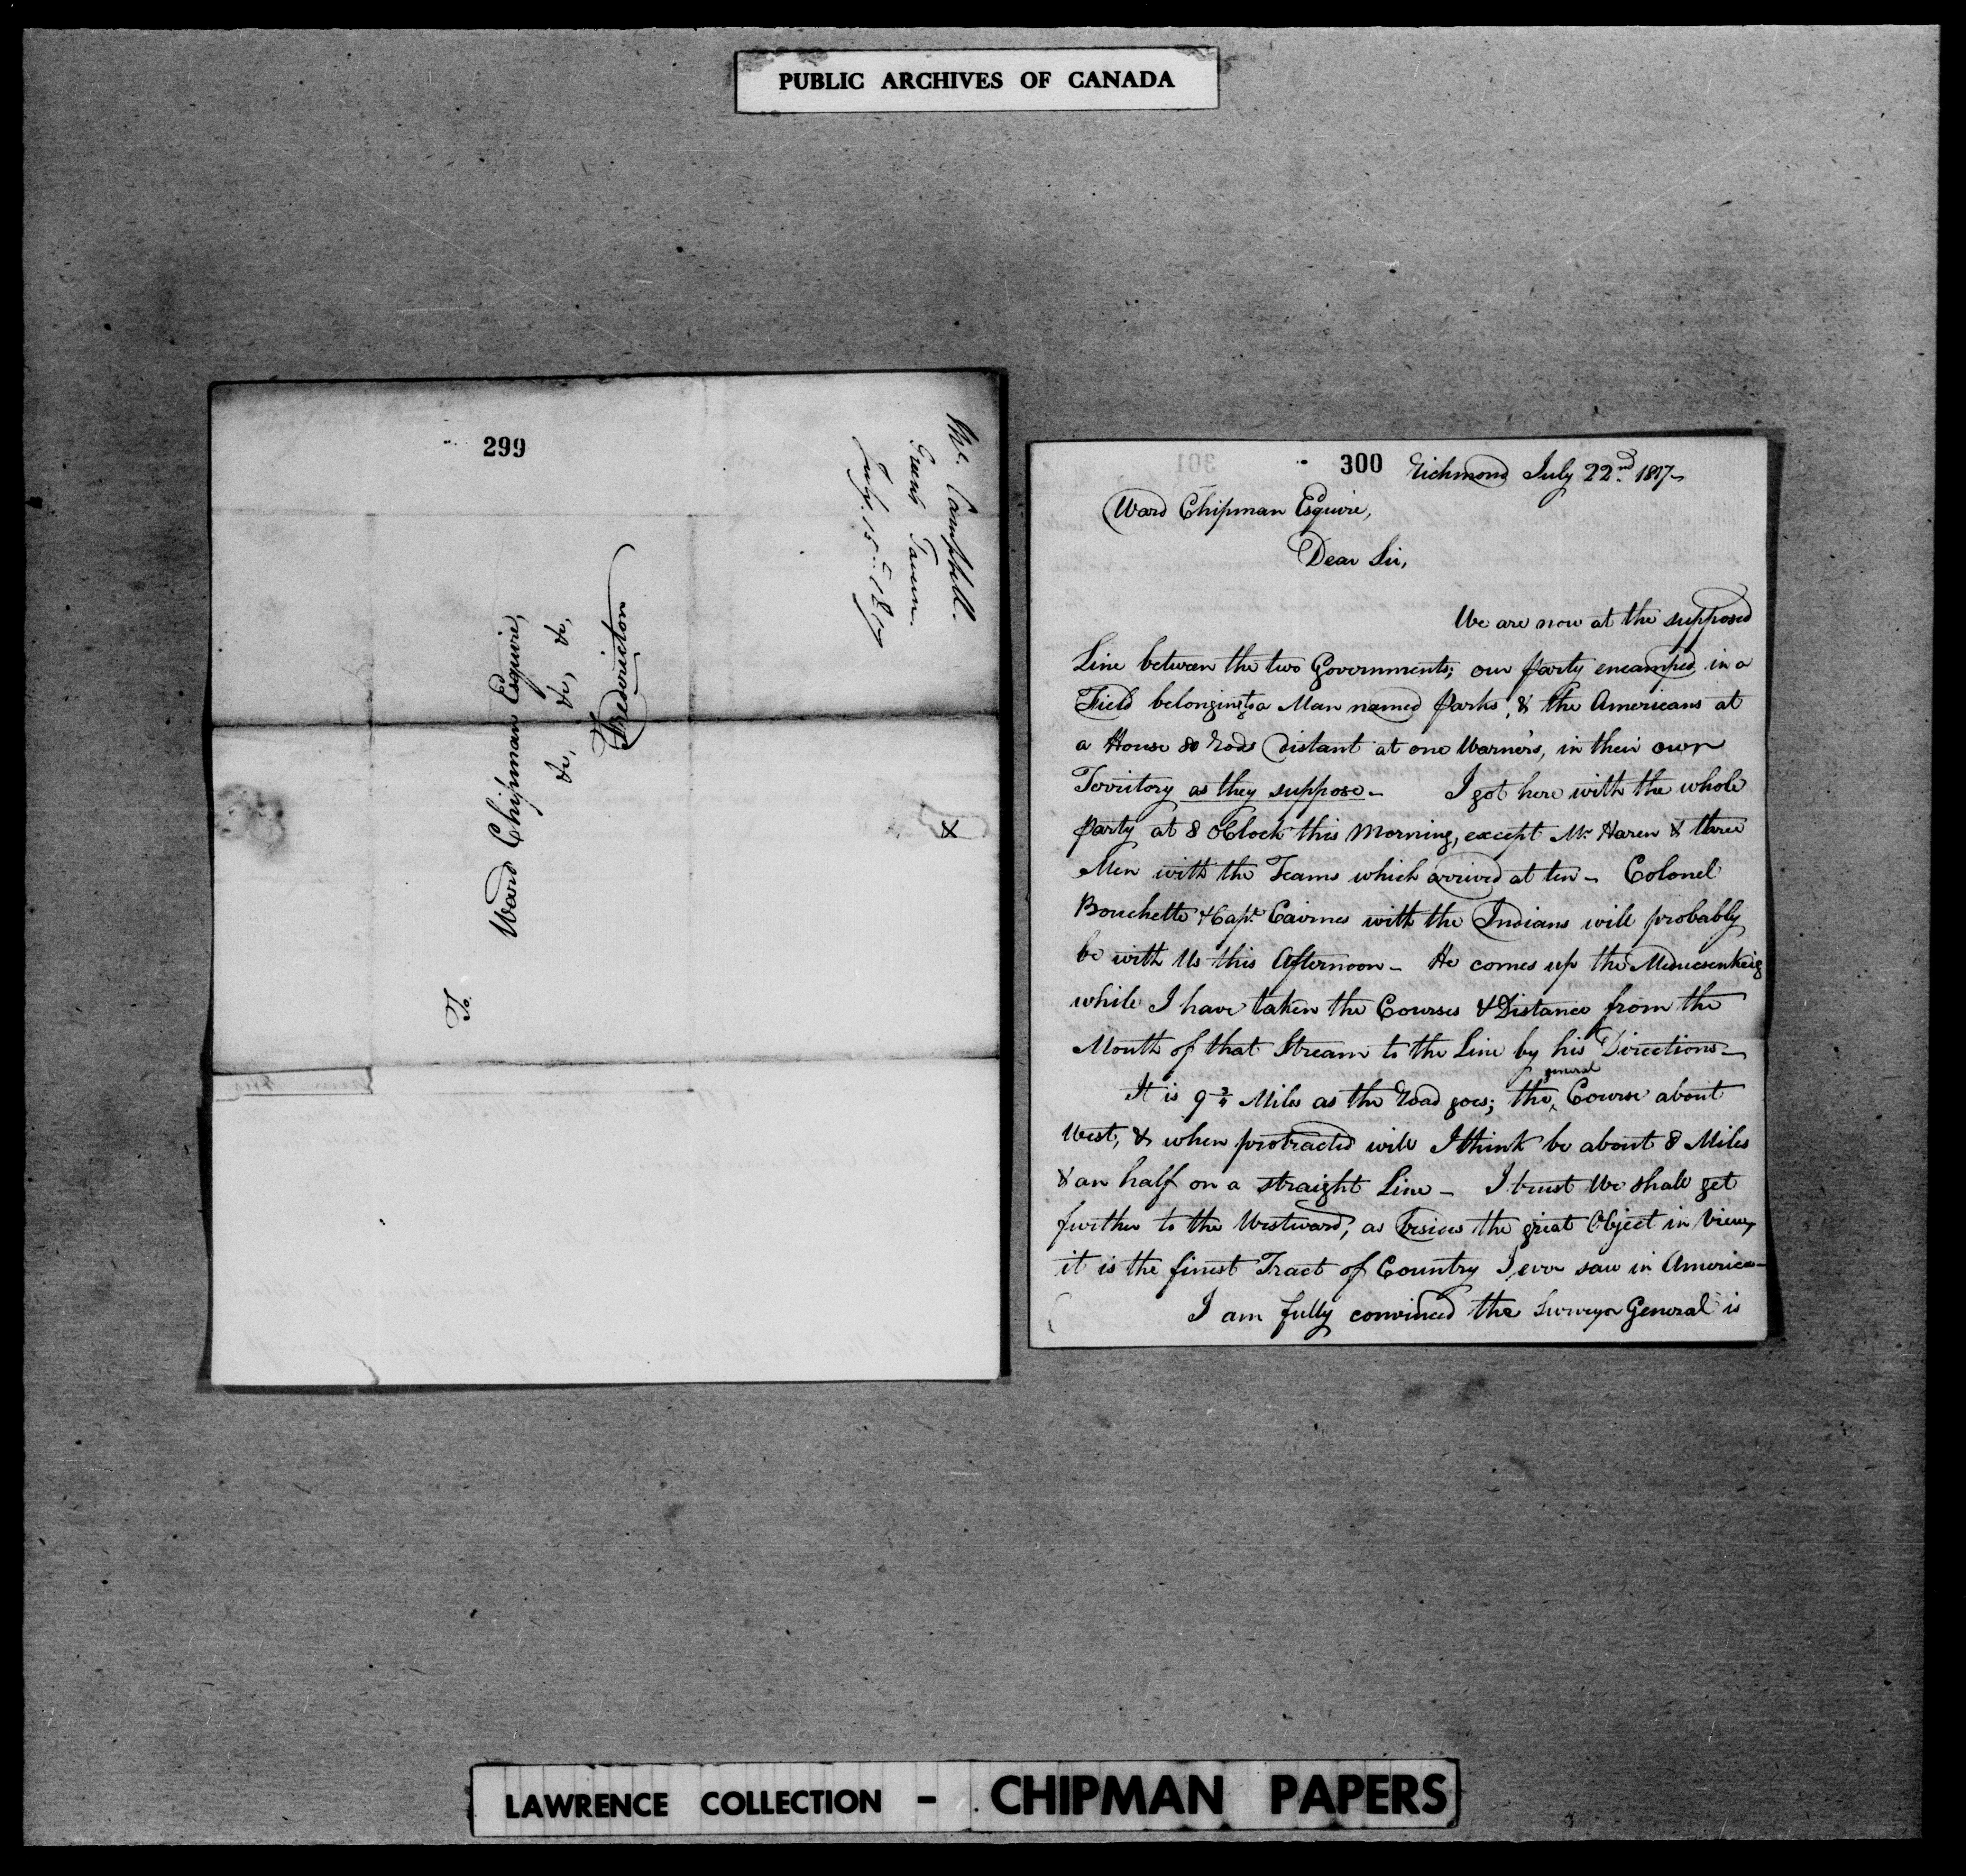 PUBLIC ARCHIVES OF CANADA
299
Mr. Campbell.
Tavern
July. 15th. 1817
To.
Ward Chipman Esquire,
&c, &c, &c,
Fredericton
300 Richmond July 22nd. 1817-
Ward Chipman Esquire,
Dear Sir,
We are now at the supposed
Line between the two Governments; our party encamped in a
Field belonging to a Man named Parks, & the Americans at
a House 80 Rods distant at one Warner's, in their own
Territory as they suppose- I got here with the whole
party at 8 oClock this Morning, except Mr. Haren & three
Men with the Teams which arrived at ten- Colonel
Bouchette & Capt. Cairnes with the Indians will probably
be with Us this Afternoon- He comes up the
while I have taken the Courses & Distance from the
Mouth of that Stream to the Line by his Directions-
It is 9 3/4 Miles as the Road goes; the general Course about
West, & when protracted will I think be about 8 Miles
& an half on a straight Line- I trust We shall get
further to the Westward, as besides the great Object in View,
it is the finest Tract of Country I ever saw in America-
I am fully convinced the Surveyor General is
LAWRENCE COLLECTION - CHIPMAN PAPERS